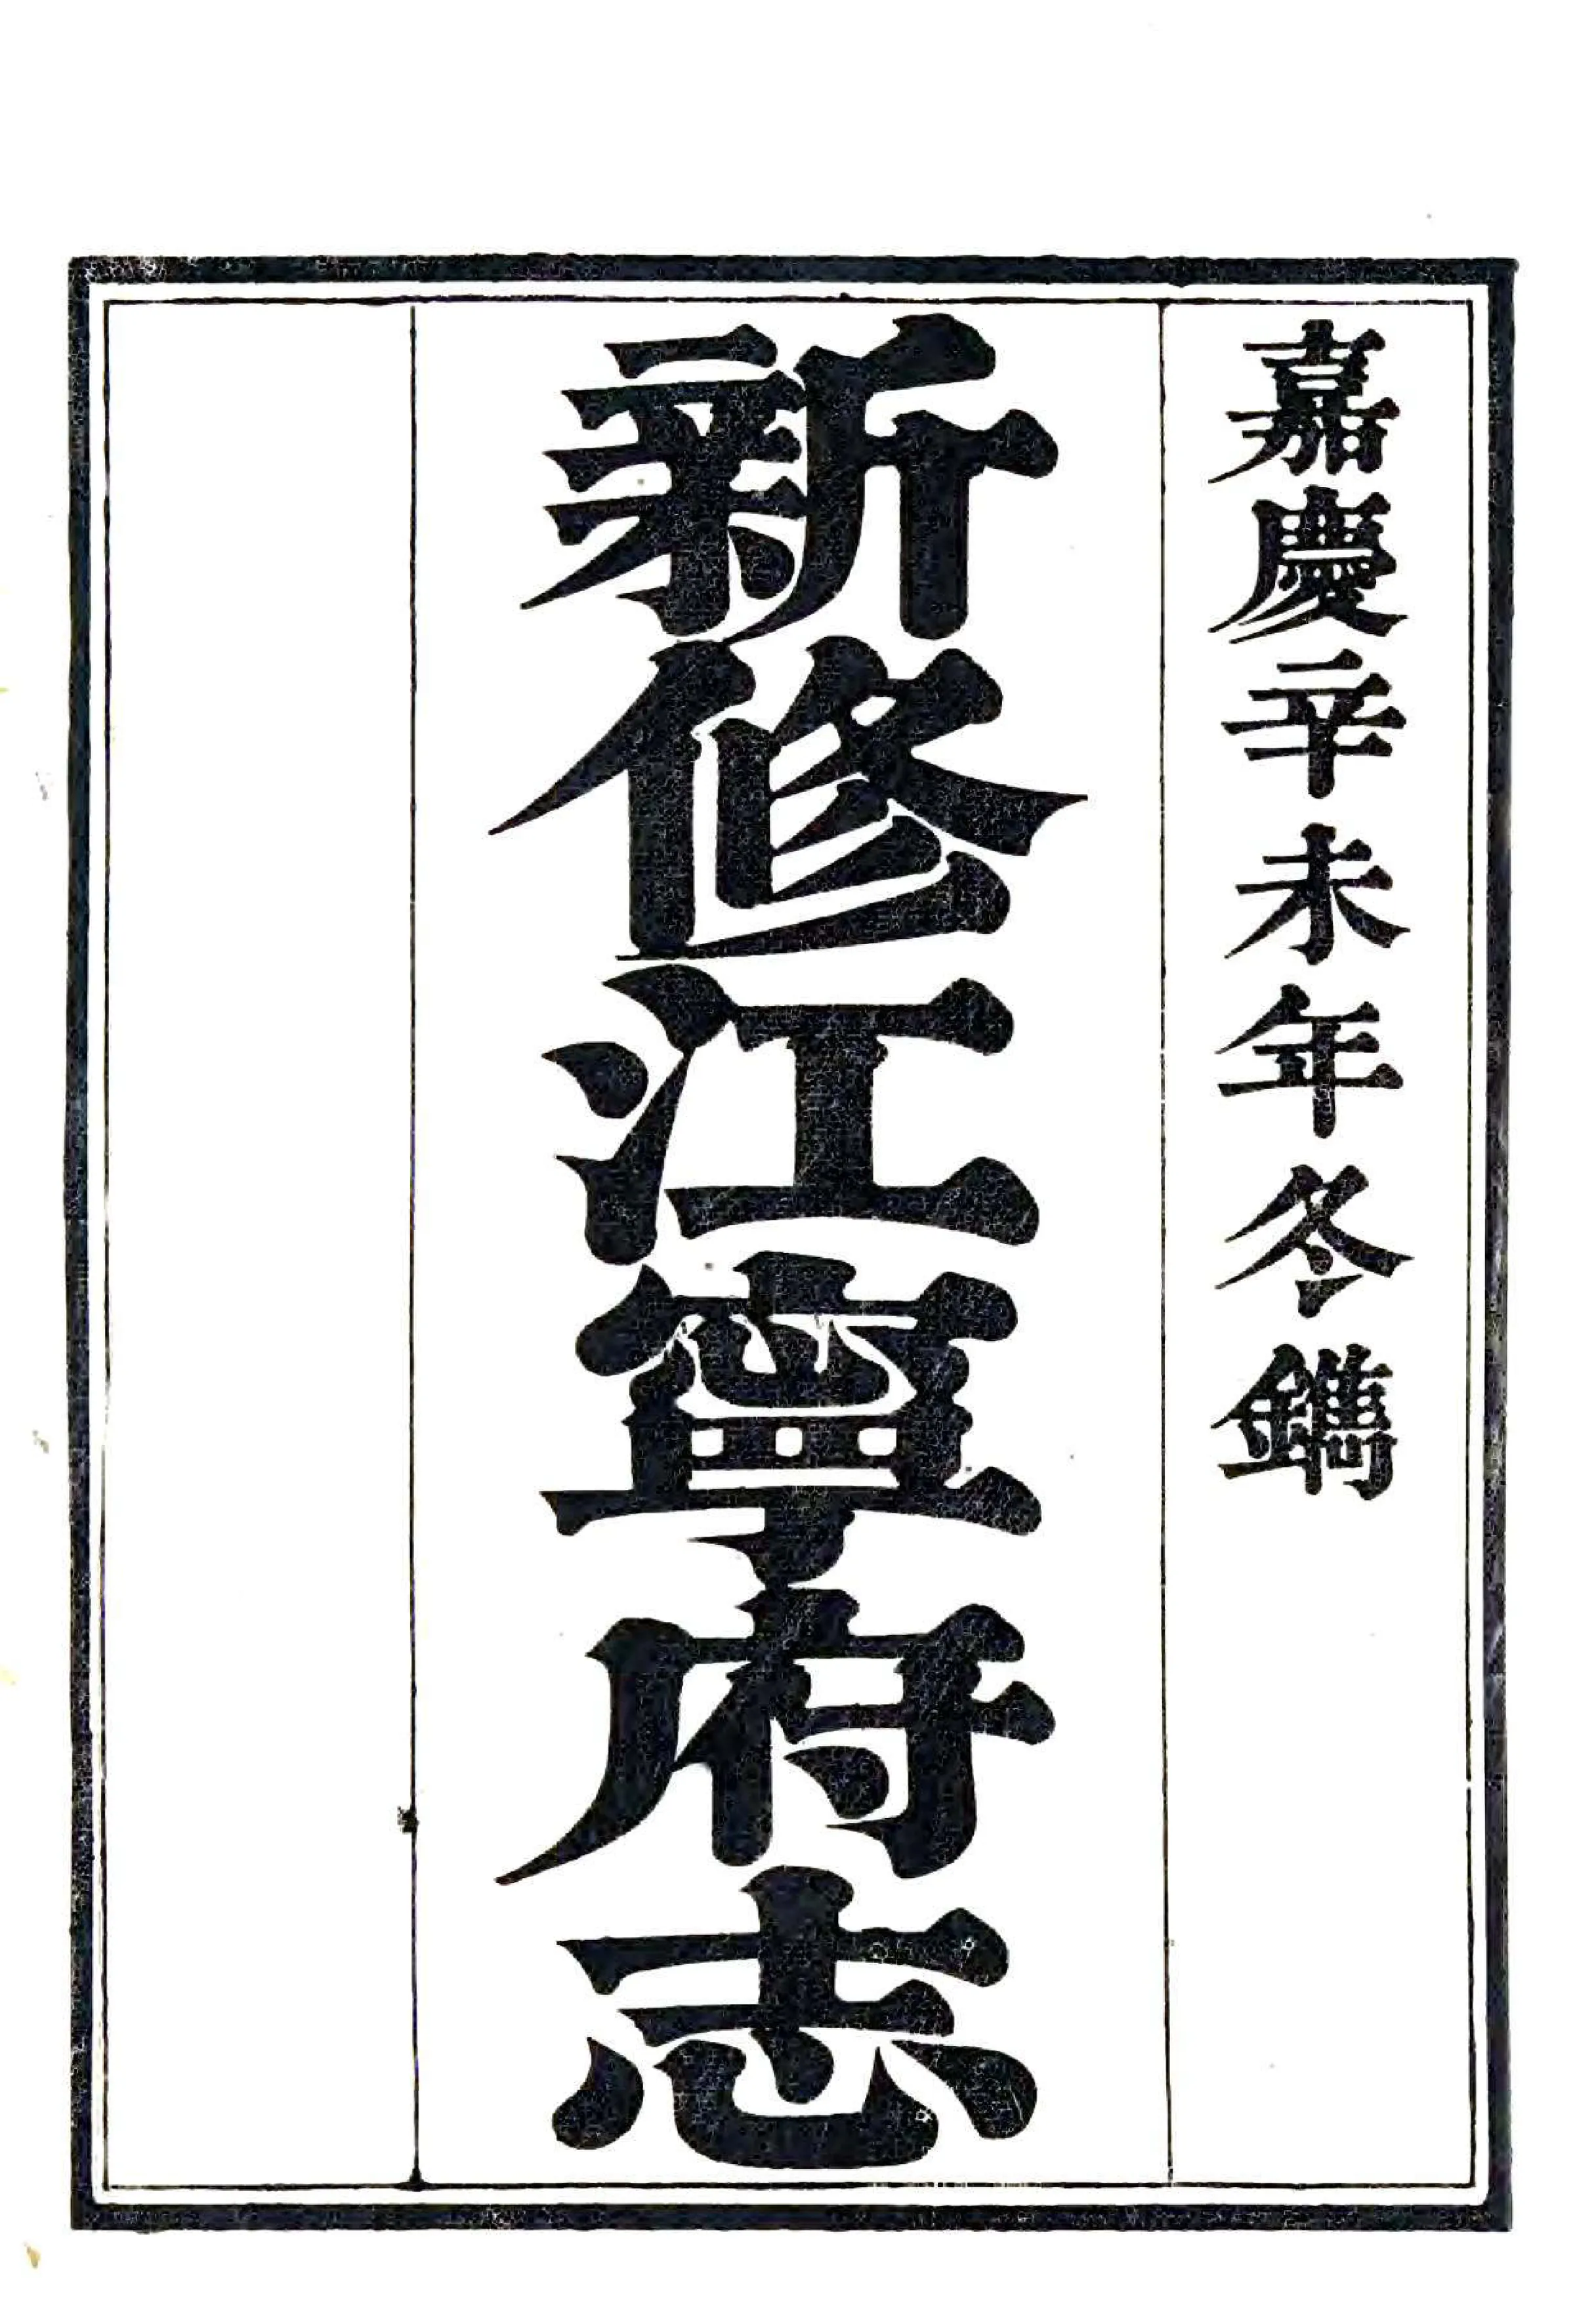 嘉慶辛未年冬鐫
新修江寧府志